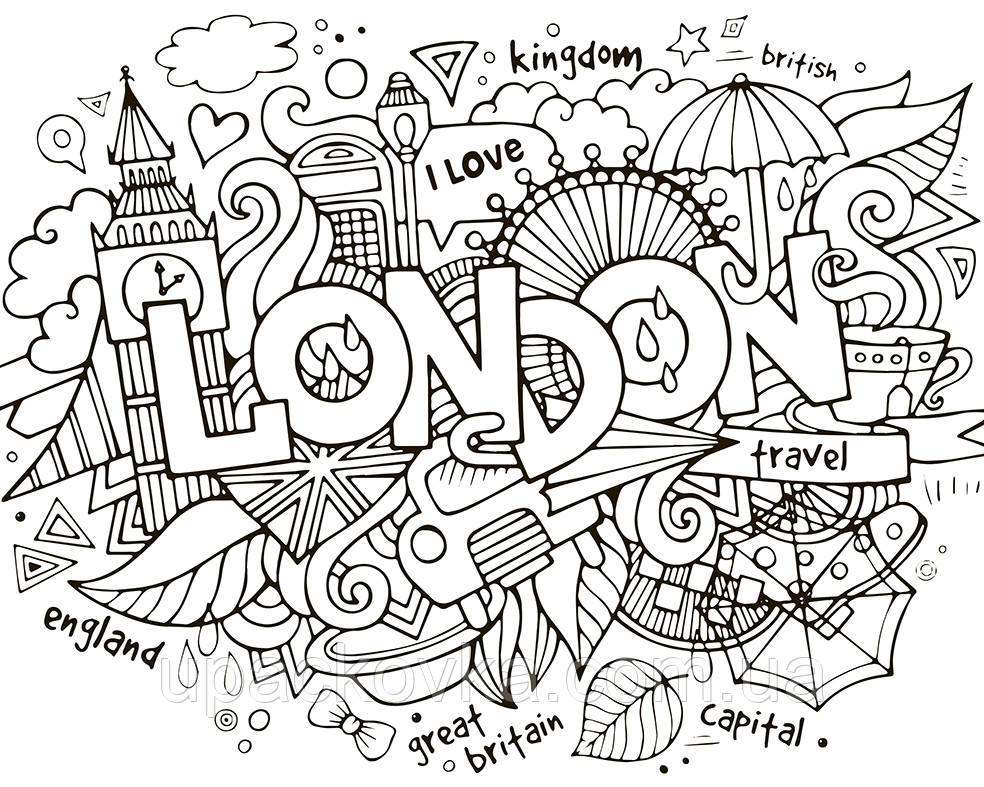 kingdom
british
I LOVE
LONDON
travel
england
great
britain
capital
upackovka.com.ua